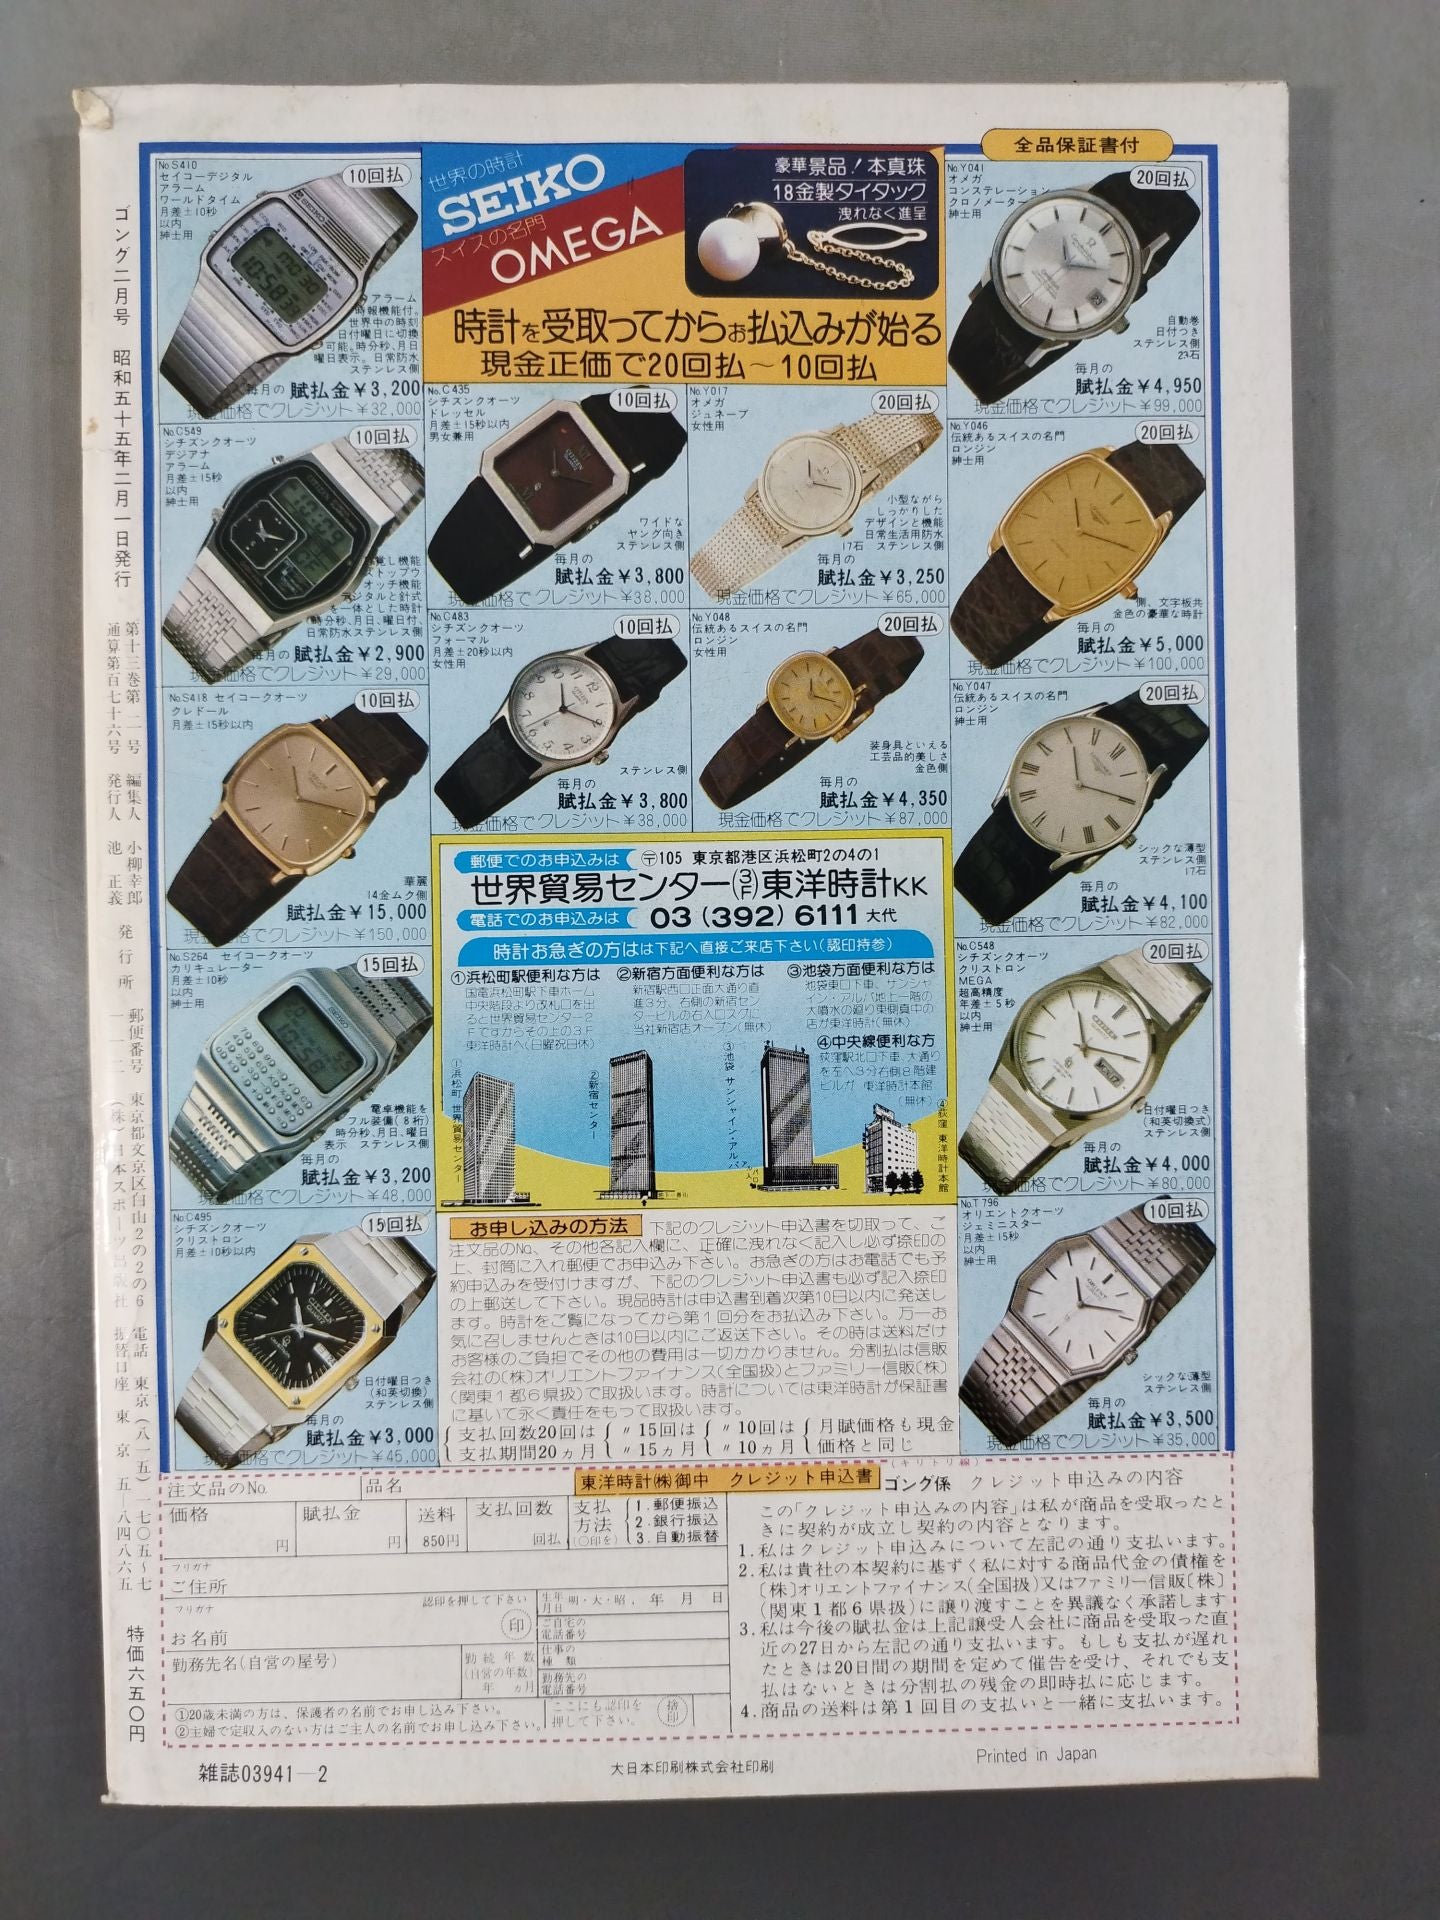 全品保証書付
世界の時計
SEIKO
スイスの名門
OMEGA
豪華景品！本真珠
18金製タイタック
洩れなく進呈
時計を受取ってからお払込みが始る
現金正価で20回払～10回払
No.S410
セイコーデジタル
アラーム
ワールドタイム
月差±10秒
以内
紳士用
10回払
アラーム
時報機能付。
世界中の時刻
日付曜日に切換
可能。時分秒、月日
曜日表示。日常防水
ステンレス側
毎月の 賦払金￥3,200
現金価格でクレジット￥32,000
No.C549
シチズンクオーツ
デジアナ
アラーム
月差±15秒
以内
紳士用
10回払
目覚し機能
ストップウ
オッチ機能
デジタルと針式
を一体とした時計
時分秒、月日、曜日付、
日常防水ステンレス側
毎月の 賦払金￥2,900
現金価格でクレジット￥29,000
No.S418 セイコークオーツ
クレドール
月差±15秒以内
10回払
華麗
14金ムク側
賦払金￥15,000
現金価格でクレジット￥150,000
No.S264 セイコークオーツ
カリキュレーター
月差±10秒
以内
紳士用
15回払
電卓機能を
フル装備(8桁)
時分秒、月日、曜日
表示 ステンレス側
毎月の
賦払金￥3,200
現金価格でクレジット￥48,000
No.C495
シチズンクオーツ
クリストロン
月差±10秒以内
15回払
日付曜日つき
(和英切換)
ステンレス側
毎月の
賦払金￥3,000
現金価格でクレジット￥45,000
No.C435
シチズンクオーツ
ドレッセル
月差±15秒以内
男女兼用
10回払
ワイドな
ヤング向き
ステンレス側
毎月の
賦払金￥3,800
現金価格でクレジット￥38,000
No.Y017
オメガ
ジュネーブ
女性用
20回払
小型ながら
しっかりした
デザインと機能
日常生活用防水
17石 ステンレス側
毎月の
賦払金￥3,250
現金価格でクレジット￥65,000
No.C483
シチズンクオーツ
フォーマル
月差±20秒以内
女性用
10回払
ステンレス側
毎月の
賦払金￥3,800
現金価格でクレジット￥38,000
No.Y048
伝統あるスイスの名門
ロンジン
女性用
20回払
装身具といえる
工芸品的美しさ
金色側
毎月の
賦払金￥4,350
現金価格でクレジット￥87,000
No.Y041
オメガ
コンステレーション
クロノメーター
紳士用
20回払
自動巻
日付つき
ステンレス側
23石
毎月の
賦払金￥4,950
現金価格でクレジット￥99,000
No.Y046
伝統あるスイスの名門
ロンジン
紳士用
20回払
側、文字板共
金色の豪華な時計
毎月の
賦払金￥5,000
現金価格でクレジット￥100,000
No.Y047
伝統あるスイスの名門
ロンジン
紳士用
20回払
シックな薄型
ステンレス側
17石
毎月の
賦払金￥4,100
現金価格でクレジット￥82,000
No.C548
シチズンクオーツ
クリストロン
MEGA
超高精度
年差±5秒
以内
紳士用
20回払
日付曜日つき
(和英切換式)
ステンレス側
毎月の
賦払金￥4,000
現金価格でクレジット￥80,000
No.T796
オリエントクオーツ
ジェミニスター
月差±15秒
以内
紳士用
10回払
シックな薄型
ステンレス側
毎月の
賦払金￥3,500
現金価格でクレジット￥35,000
郵便でのお申込みは 〒105 東京都港区浜松町2の4の1
世界貿易センター(3F)東洋時計KK
電話でのお申込みは 03(392)6111大代
時計お急ぎの方はは下記へ直接ご来店下さい(認印持参)
①浜松町駅便利な方は
国電浜松町駅下車ホーム
中央階段より改札口を出
ると世界貿易センター2
Fですからその上の3F
東洋時計へ(日曜祝日休)
②新宿方面便利な方は
新宿駅西口正面大通り直
進3分、右側の新宿セン
タービルの右入口スグに
当社新宿店オープン(無休)
③池袋方面便利な方は
池袋東口下車、サンシャ
イン・アルパ地上一階の
大噴水の廻り東側真中の
店が東洋時計(無休)
④中央線便利な方
荻窪駅北口下車、大通り
を左へ3分右側8階建
ビルが 東洋時計本館
(無休)
①浜松町 世界貿易センター
②新宿センター
③池袋 サンシャイン・アルパ
④荻窪 東洋時計本館
お申し込みの方法 下記のクレジット申込書を切取って、ご
注文品のNo、その他各記入欄に、正確に洩れなく記入し必ず捺印の
上、封筒に入れ郵便でお申込み下さい。お急ぎの方はお電話でも予
約申込みを受付けますが、下記のクレジット申込書も必ず記入捺印
の上郵送して下さい。現品時計は申込書到着次第10日以内に発送し
ます。時計をご覧になってから第1回分をお払込み下さい。万一お
気に召しませんときは10日以内にご返送下さい。その時は送料だけ
お客様のご負担でその他の費用は一切かかりません。分割払は信販
会社の(株)オリエントファイナンス(全国扱)とファミリー信販〔株〕
(関東1都6県扱)で取扱います。時計については東洋時計が保証書
に基いて永く責任をもって取扱います。
支払回数20回は 〃15回は 〃10回は 月賦価格も現金
支払期間20ヵ月 〃15ヵ月 〃10ヵ月 価格と同じ
(キリトリ線)
注文品のNo. 品名
東洋時計㈱御中 クレジット申込書 ゴング係
価格 円
賦払金 円
送料 850円
支払回数 回払
支払方法(○印を) 1.郵便振込
2.銀行振込
3.自動振替
フリガナ
ご住所
フリガナ
お名前
認印を押して下さい
印
生年月日 明・大・昭. 年 月 日
ご自宅の電話番号
勤務先名(自営の屋号)
勤続年数
(自営の年数)
年 ヵ月
仕事の種類
勤務先の電話番号
①20歳未満の方は、保護者の名前でお申し込み下さい。
②主婦で定収入のない方はご主人の名前でお申し込み下さい。
ここにも認印を
押して下さい。
捨印
クレジット申込みの内容
この「クレジット申込みの内容」は私が商品を受取ったと
きに契約が成立し契約の内容となります。
1.私はクレジット申込みについて左記の通り支払います。
2.私は貴社の本契約に基ずく私に対する商品代金の債権を
〔株〕オリエントファイナンス(全国扱)又はファミリー信販〔株〕
(関東1都6県扱)に譲り渡すことを異議なく承諾します
3.私は今後の賦払金は上記譲受人会社に商品を受取った直
近の27日から左記の通り支払います。もしも支払が遅れ
たときは20日間の期間を定めて催告を受け、それでも支
払はないときは分割払の残金の即時払に応じます。
4.商品の送料は第1回目の支払いと一緒に支払います。
ゴング二月号 昭和五十五年二月一日発行
第十三巻第二号
通算第百七十六号
編集人 小柳幸郎
発行人 池 正義
発行所 郵便番号一一二 東京都文京区白山2の2の6 (株)日本スポーツ出版社
電話 東京(八一五)一七〇五～七
振替口座 東京五―八四八六五
特価六五〇円
雑誌03941―2
大日本印刷株式会社印刷
Printed in Japan